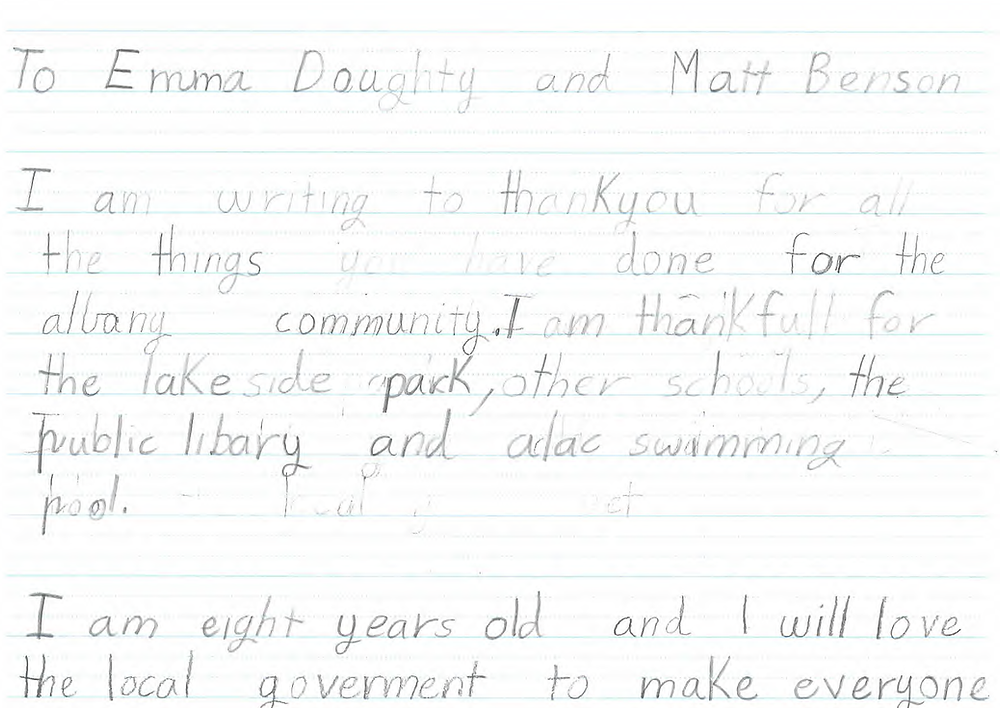 To Emma Doughty and Matt Benson
I am writing to thankyou for all
the things you have done for the
albany community. I am thankfull for
the lakeside park, other schools, the
public libary and alac swimming
pool.
I am eight years old and I will love
the local goverment to make everyone